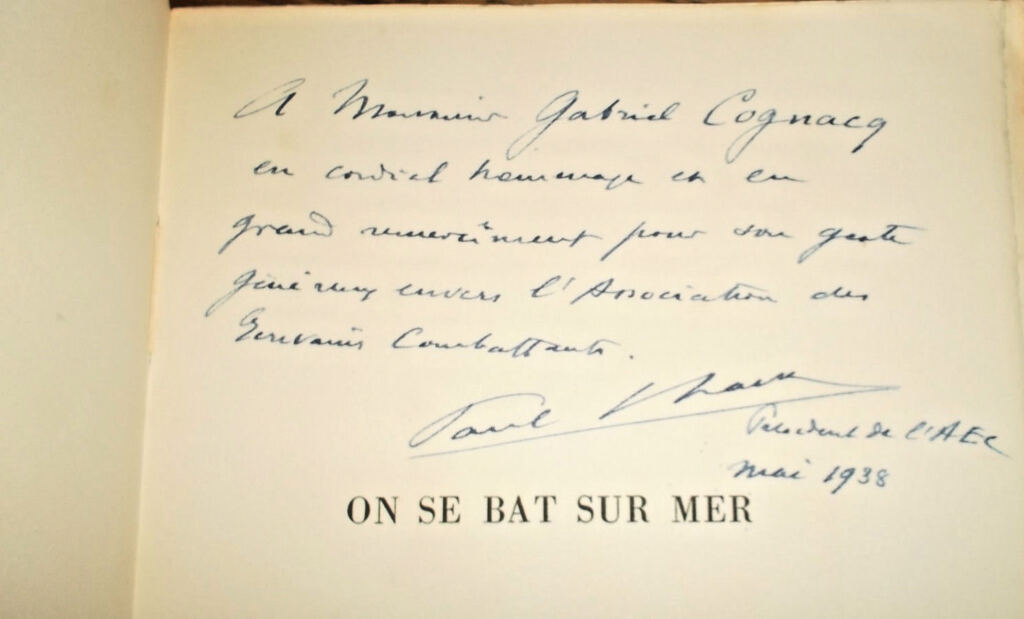 A Monsieur Gabriel Cognacq
en cordial hommage et en
grand remerciment pour son geste
généreux envers l'Association des
Ecrivains Combattants.
Paul Chack
Président de l'AEC
mai 1938
ON SE BAT SUR MER